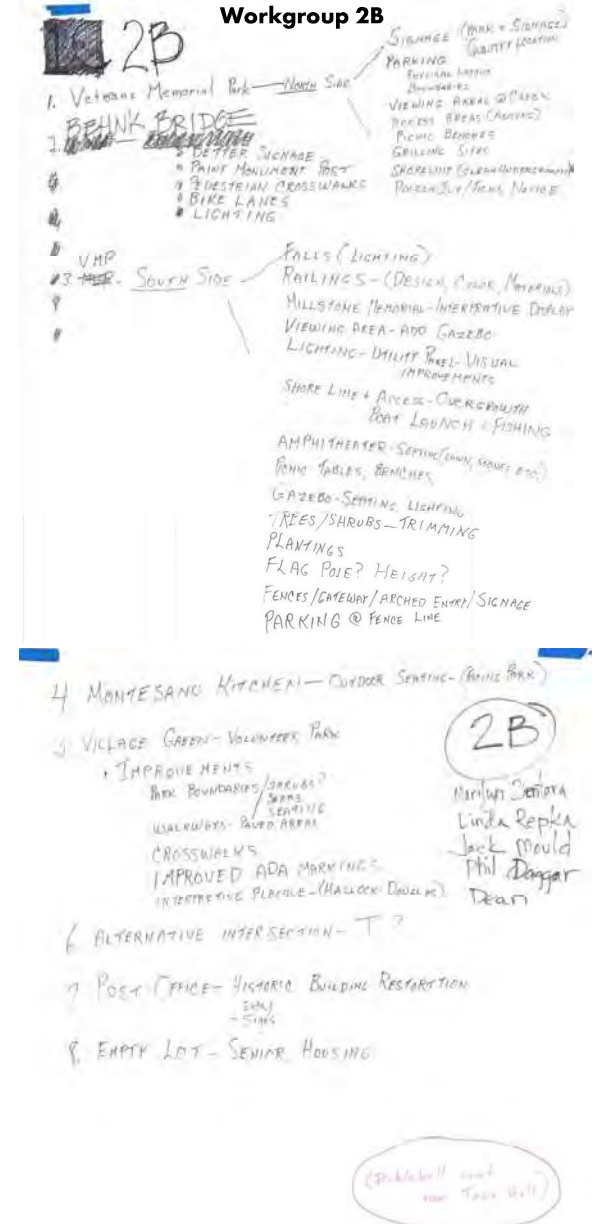 Workgroup 2B
2B
1. Veterans Memorial Park — North Side
SIGNAGE (PARK & SIGNAGE)
QUALITY LOCATION
PARKING
PHYSICAL LAYOUT
BOUNDARIES
VIEWING AREAS @ CREEK
ACCESS AREAS
PICNIC BENCHES
GRILLING SITES
SHORELINE
POISON IVY/TICKS NOTICE
2. BEHNK BRIDGE
BETTER SIGNAGE
PAINT MONUMENT POST
PEDESTRIAN CROSSWALKS
BIKE LANES
LIGHTING
3. VMP - SOUTH SIDE -
FALLS (LIGHTING)
RAILINGS - (DESIGN, COLOR, MATERIALS)
MILLSTONE MEMORIAL - INTERPRATIVE DISPLAY
VIEWING AREA - ADD GAZEBO
LIGHTING - UTILITY PANEL - VISUAL
IMPROVEMENTS
SHORE LINE + ACCESS - OVERGROWTH
BOAT LAUNCH & FISHING
AMPHITHEATER - SEATING (LAWN, STONES ETC.)
PICNIC TABLES, BENCHES,
GAZEBO - SEATING, LIGHTING
TREES/SHRUBS - TRIMMING
PLANTINGS
FLAG POLE? HEIGHT?
FENCES/GATEWAY/ARCHED ENTRY/SIGNAGE
PARKING @ FENCE LINE
4 MONTESANO KITCHEN — OUTDOOR SEATING - PARK)
5 VILLAGE GREEN - VOLUNTEER PARK
IMPROVEMENTS
PARK BOUNDARIES/SHRUBS?
BERMS
SEATING
WALKWAYS - PAVED AREAS
CROSSWALKS
IMPROVED ADA MARKINGS
INTERPRETIVE PLACQUE - (HALLOCK DOUGLAS)
2B
Marilyn
Linda Repka
Jack Mould
Phil Daggar
Dean
6 ALTERNATIVE INTERSECTION - T?
7 POST OFFICE - HISTORIC BUILDING RESTORTTION
- SIGNS
8. EMPTY LOT - SENIOR HOUSING
(Pickleball court
near Town Hall)